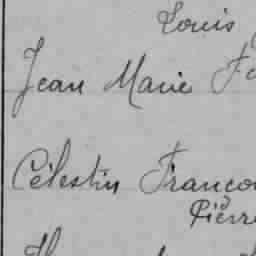 Louis
Jean Marie
Célestin Franço
Pierre